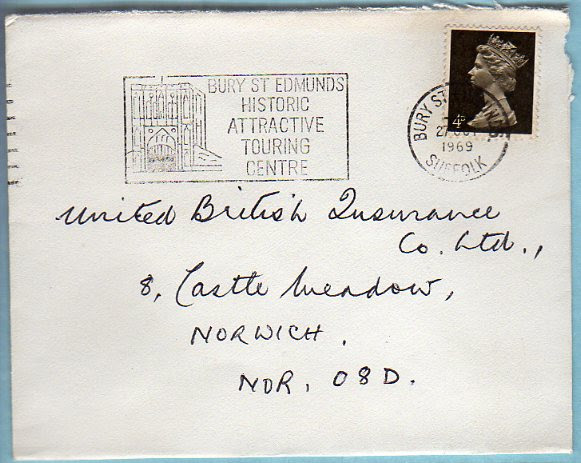 BURY ST EDMUNDS
HISTORIC
ATTRACTIVE
TOURING
CENTRE
4D
BURY ST
27 OCT
1969
SUFFOLK
United British Insurance
Co. Ltd.,
8, Castle Meadow,
NORWICH.
NOR. 08D.